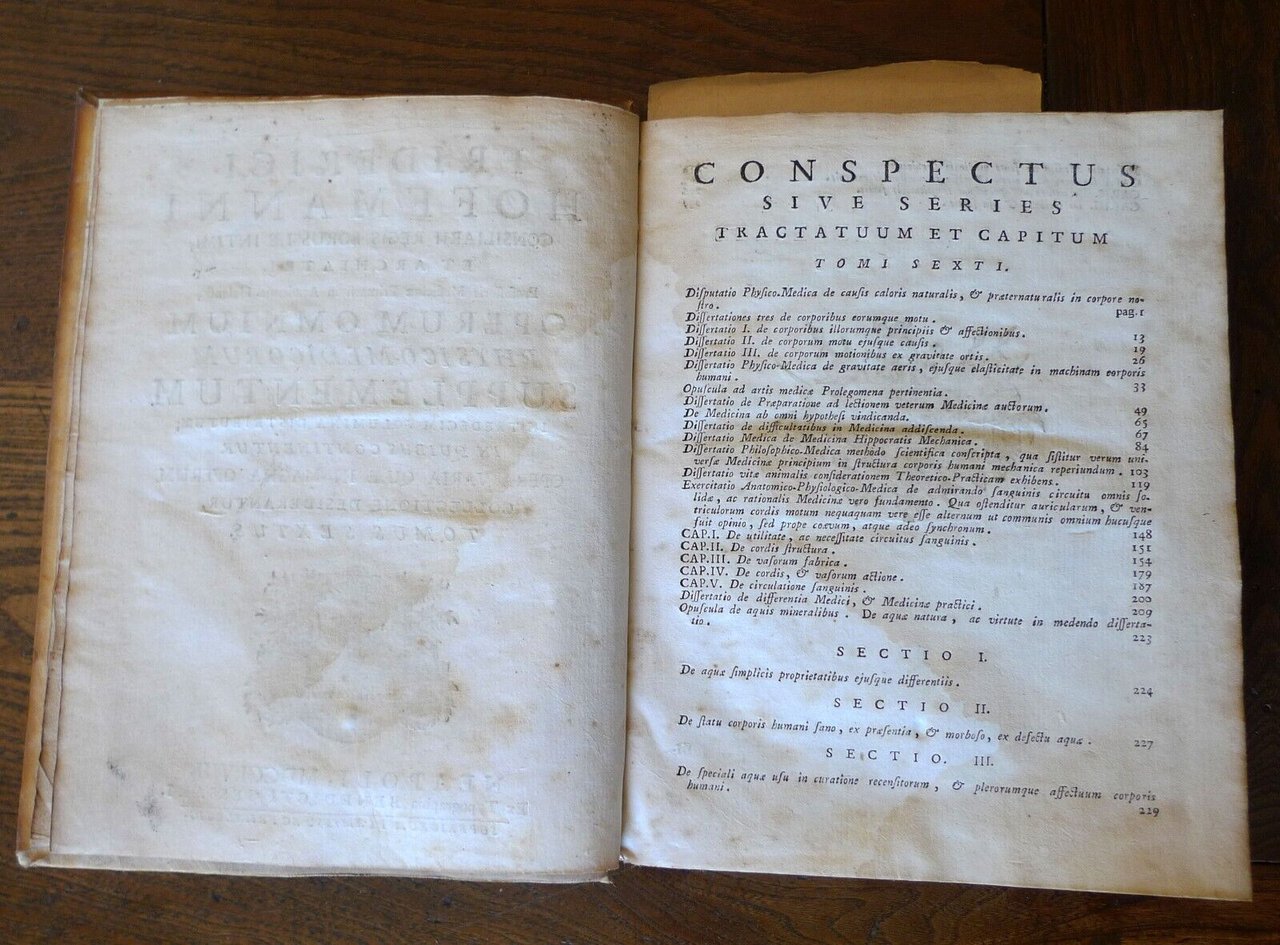 FRIDERICI
HOFFMANNI
CONSILIARII REGIS BORUSSIÆ INTIMI,
ET ARCHIATRI
OPERUM OMNIUM
PHYSICO-MEDICORUM
SUPPLEMENTUM
IN QUIBUS CONTINENTUR
TOMUS SEXTUS
NEAPOLI MDCC
CONSPECTUS
SIVE SERIES
TRACTATUUM ET CAPITUM
TOMI SEXTI.
Disputatio Physico-Medica de causis caloris naturalis, & præternaturalis in corpore no-
stro. pag. 1
Dissertationes tres de corporibus eorumque motu.
Dissertatio I. de corporibus illorumque principiis & affectionibus. 13
Dissertatio II. de corporum motu ejusque causis. 19
Dissertatio III. de corporum motionibus ex gravitate ortis. 26
Dissertatio Physico-Medica de gravitate aeris, ejusque elasticitate in machinam corporis
humani. 33
Opuscula ad artis medicæ Prolegomena pertinentia.
Dissertatio de Præparatione ad lectionem veterum Medicinæ auctorum. 49
De Medicina ab omni hypothesi vindicanda. 65
Dissertatio de difficultatibus in Medicina addiscenda. 67
Dissertatio Medica de Medicina Hippocratis Mechanica. 84
Dissertatio Philosophico-Medica methodo scientifica conscripta, qua sistitur verum uni-
versæ Medicinæ principium in structura corporis humani mechanica reperiundum. 103
Dissertatio vitæ animalis considerationem Theoretico-Practicam exhibens. 119
Exercitatio Anatomico-Physiologico-Medica de admirando sanguinis circuitu omnis so-
lidæ, ac rationalis Medicinæ vero fundamento. Qua ostenditur auricularum, & ven-
triculorum cordis motum nequaquam vere esse alternum ut communis omnium hucusque
fuit opinio, sed prope coævum, atque adeo synchronum. 148
CAP. I. De utilitate, ac necessitate circuitus sanguinis. 151
CAP. II. De cordis structura. 154
CAP. III. De vasorum fabrica. 179
CAP. IV. De cordis, & vasorum actione. 187
CAP. V. De circulatione sanguinis. 200
Dissertatio de differentia Medici, & Medicinæ practici. 209
Opuscula de aquis mineralibus. De aquæ natura, ac virtute in medendo disserta-
tio. 223
SECTIO I.
De aquæ simplicis proprietatibus ejusque differentiis. 224
SECTIO II.
De statu corporis humani sano, ex præsentia, & morboso, ex defectu aquæ. 227
SECTIO. III.
De speciali aquæ usu in curatione recensitorum, & plerorumque affectuum corporis
humani. 229